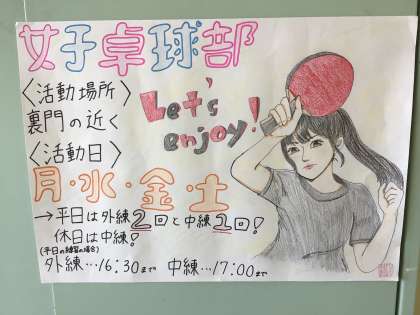 女子卓球部
〈活動場所〉
裏門の近く
〈活動日〉
月・水・金・土
→平日は外練2回と中練1回!
休日は中練!
(平日の練習の場合)
外練…16:30まで 中練…17:00まで
Let's
enjoy!